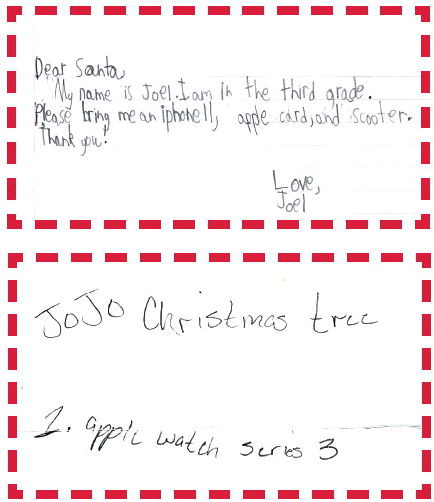 Dear Santa,
My name is Joel. I am in the third grade.
Please bring me an iphone 11, apple card, and scooter.
Thank you!
Love,
Joel
JoJo Christmas tree
1. apple watch series 3